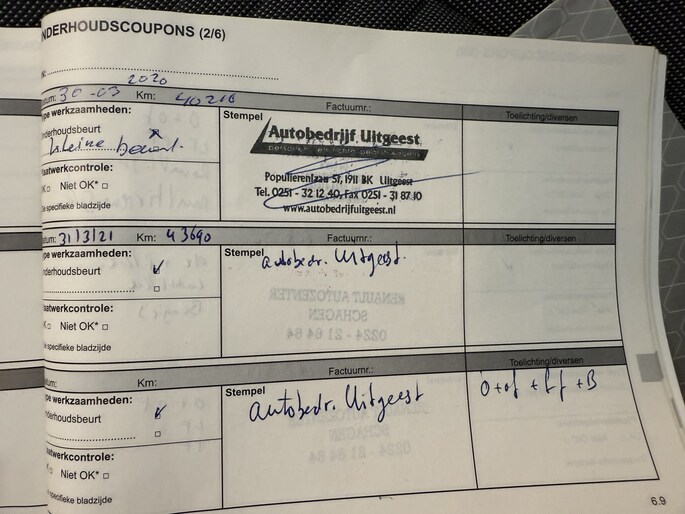 NDERHOUDSCOUPONS (2/6)
2020
tum: 30-03 Km: 40216 Factuurnr.: Toelichting/diversen
pe werkzaamheden:
nderhoudsbeurt
kleine beurt.
aatwerkcontrole:
Niet OK*
e specifieke bladzijde
Stempel
Autobedrijf Uitgeest
Populierenlaan 57, 1911 BK Uitgeest
Tel. 0251 - 32 12 40, Fax 0251 - 31 87 10
www.autobedrijfuitgeest.nl
tum: 31/3/21 Km: 43690 Factuurnr.: Toelichting/diversen
pe werkzaamheden:
nderhoudsbeurt
aatwerkcontrole:
Niet OK*
e specifieke bladzijde
Stempel
autobedr. Uitgeest.
tum: Km: Factuurnr.: Toelichting/diversen
pe werkzaamheden:
nderhoudsbeurt
aatwerkcontrole:
Niet OK*
e specifieke bladzijde
Stempel
autobedr. Uitgeest
O+of +Lf +B
6.9